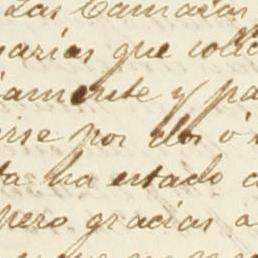 las Camadas
arias que
amente y pa
irse por dos ó
ta ha estado
pero gracias a